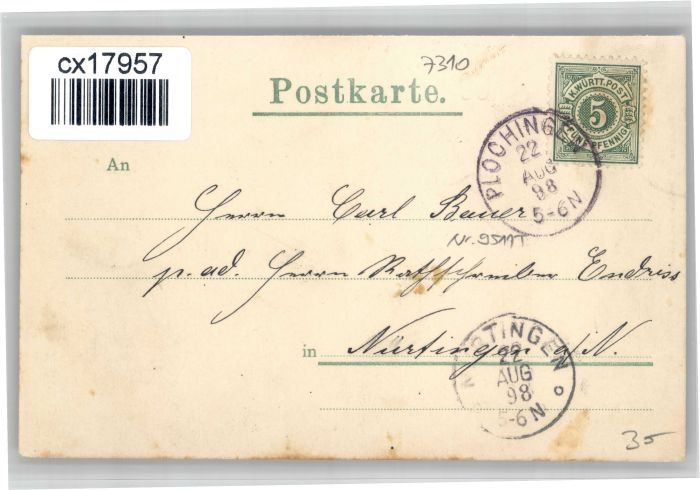 cx17957
7310
Postkarte.
K. WÜRTT. POST
5
FÜNF PFENNIG
PLOCHINGEN
22
AUG
98
5-6 N
An
Herrn Carl Bauer
Nr. 9511T
p. ad. Herrn Rathschreiber Endriss
in Nürtingen a/N.
NÜRTINGEN
22
AUG
98
5-6 N
35